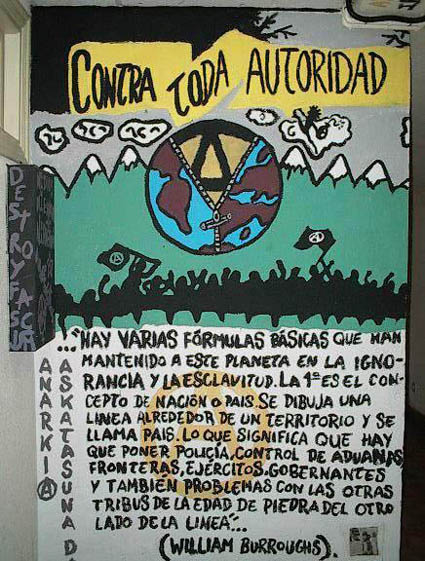 CONTRA TODA AUTORIDAD
A
A
A
DESTROY FASCUM
..."HAY VARIAS FÓRMULAS BÁSICAS QUE HAN
MANTENIDO A ESTE PLANETA EN LA IGNO-
RANCIA Y LA ESCLAVITUD. LA 1ª ES EL CON-
CEPTO DE NACIÓN O PAIS. SE DIBUJA UNA
LINEA ALREDEDOR DE UN TERRITORIO Y SE
LLAMA PAIS. LO QUE SIGNIFICA QUE HAY
QUE PONER POLICÍA, CONTROL DE ADUANAS,
FRONTERAS, EJÉRCITOS, GOBERNANTES
Y TAMBIÉN PROBLEMAS CON LAS OTRAS
TRIBUS DE LA EDAD DE PIEDRA DEL OTRO
LADO DE LA LINEA"...
(WILLIAM BURROUGHS).
ANARKIA
ASKATASUNA DA